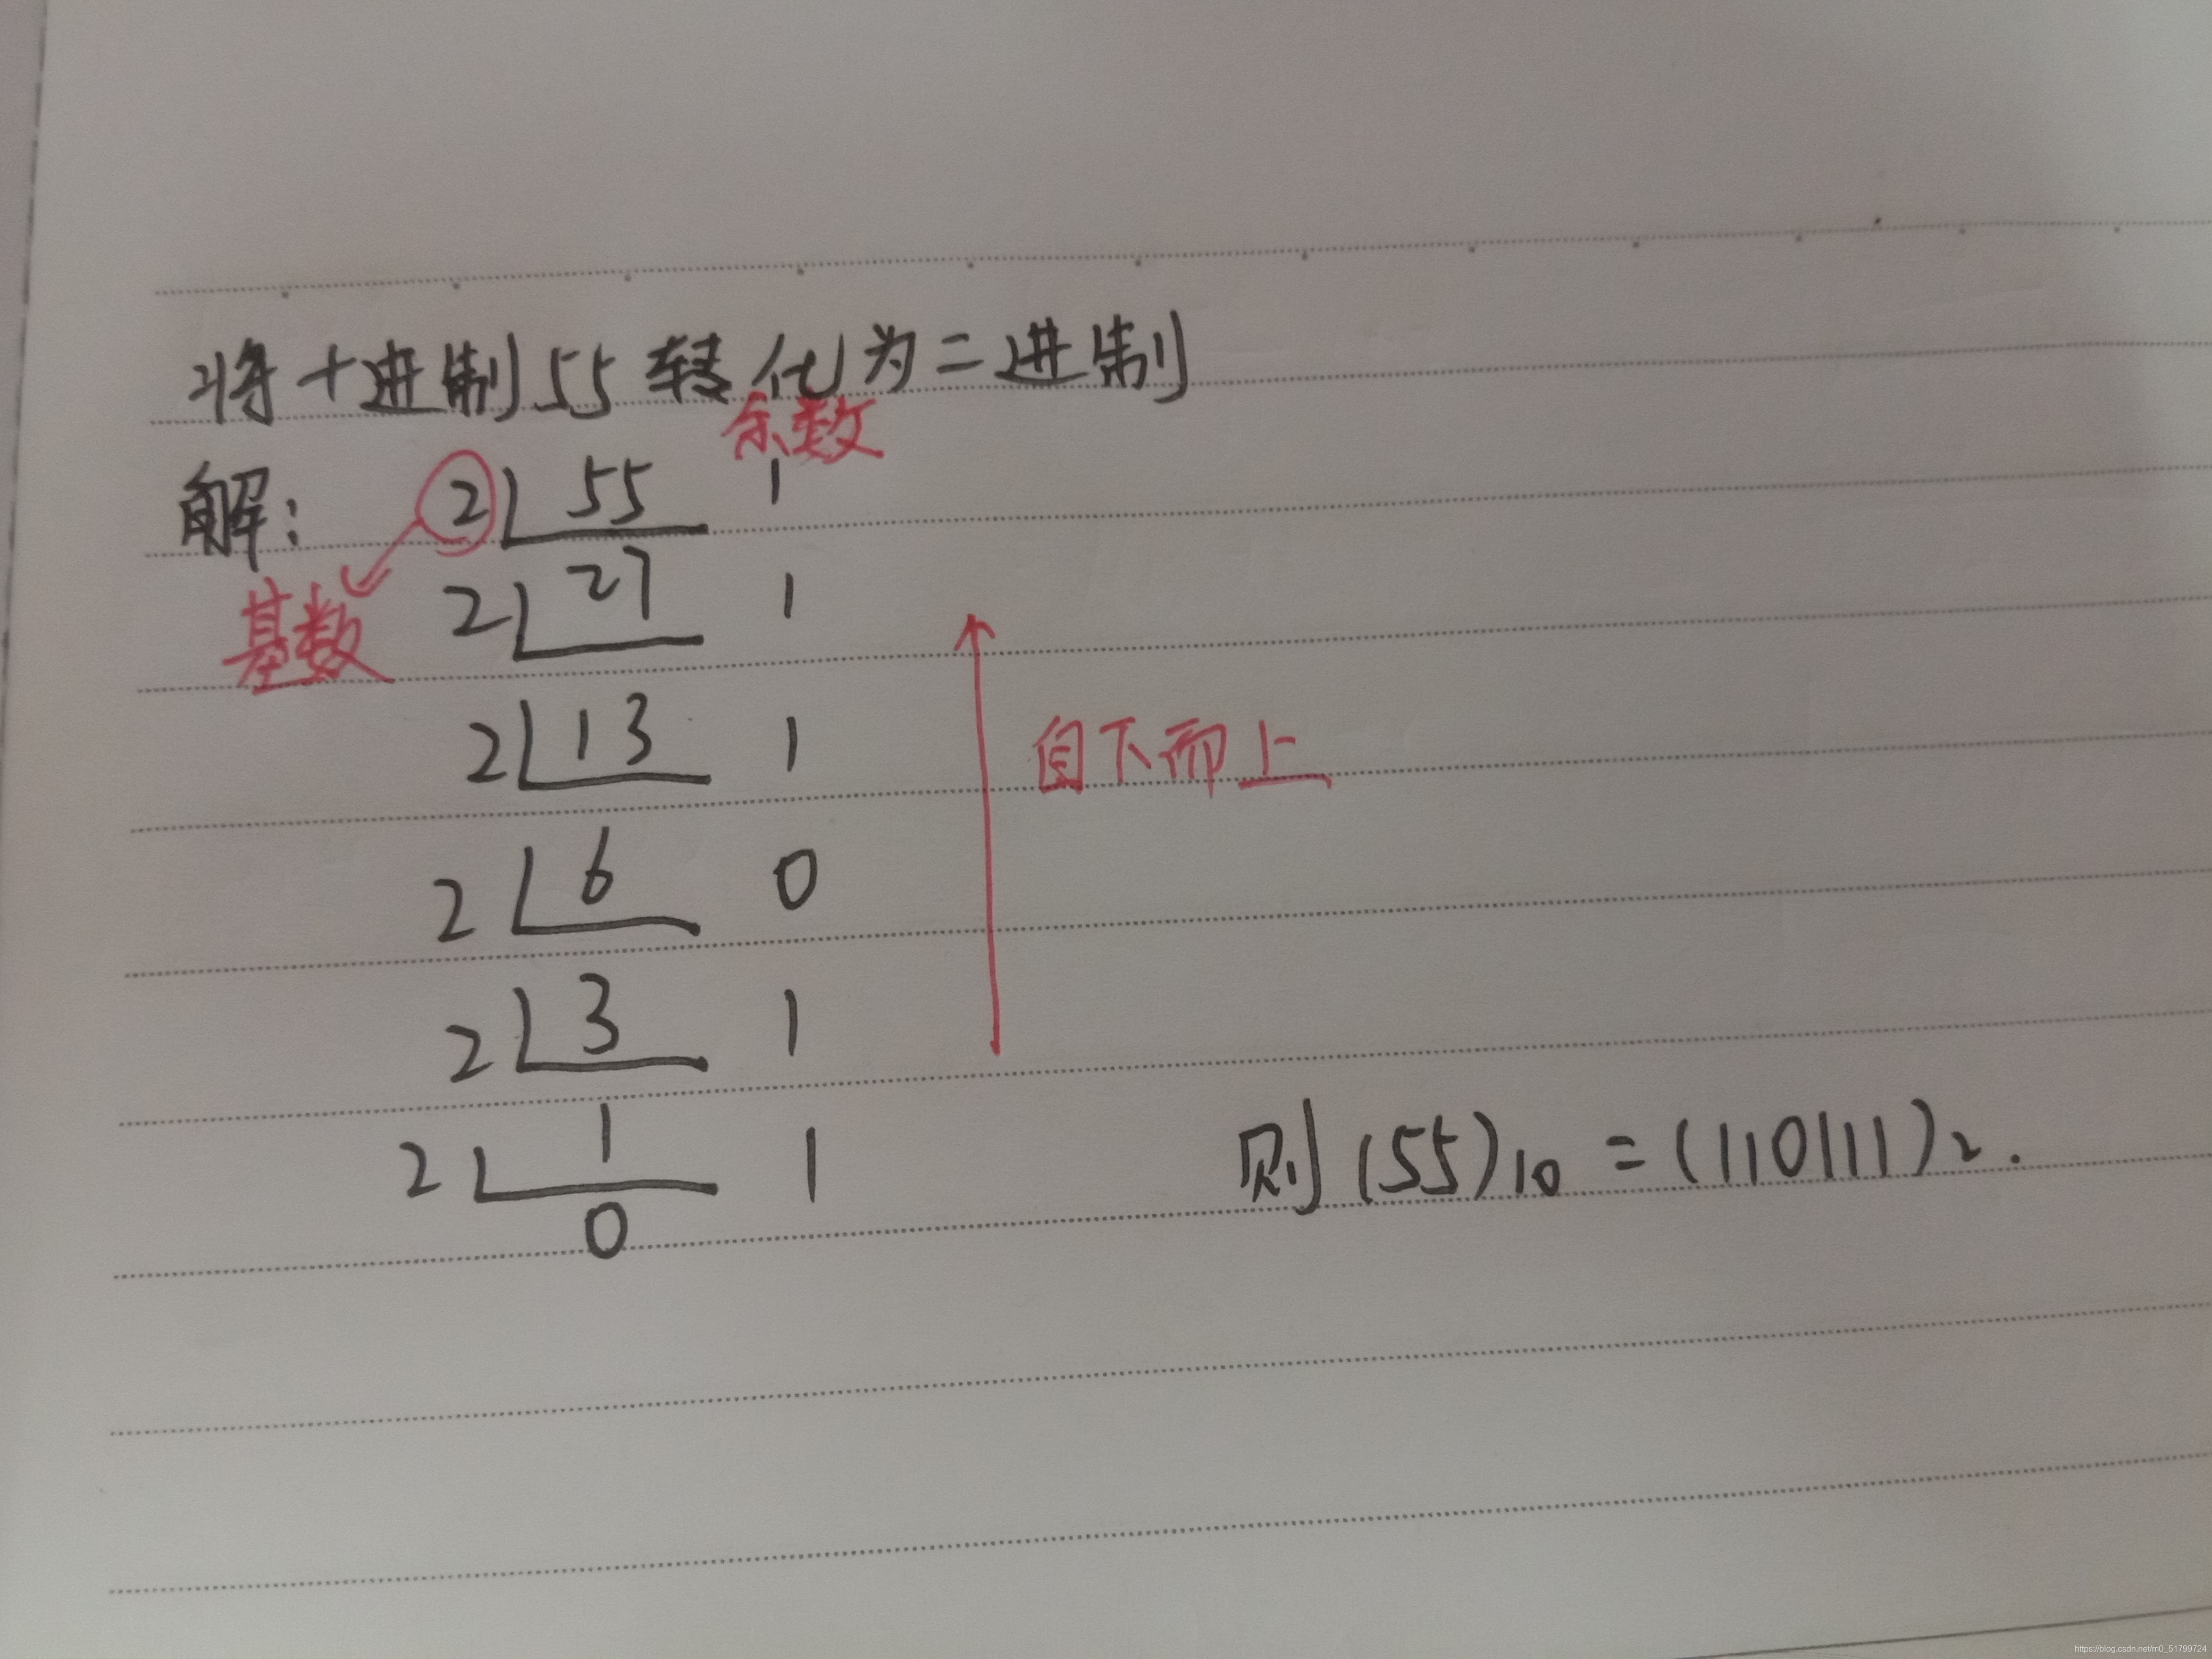 将十进制55转化为二进制
余数
解: 2 55 1
基数
2 27 1
2 13 1
自下而上
2 6 0
2 3 1
2 1 1
0
则(55)10=(110111)2.
https://blog.csdn.net/m0_51799724